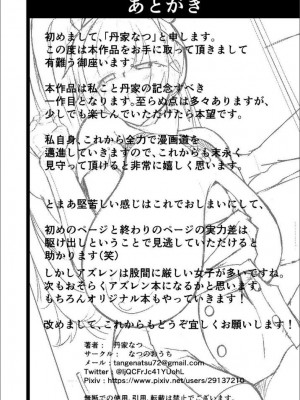 あとがき
初めまして、「丹家なつ」と申します。
この度は本作品をお手に取って頂きまして
有難う御座います。
本作品は私こと丹家の記念すべき
一作目となります。至らぬ点は多々ありますが、
少しでも楽しんでいただけたら本望です。
私自身、これから全力で漫画道を
邁進していきますので、これからも末永く
見守って頂けると非常に嬉しく思います。
とまあ堅苦しい感じはこれでおしまいにして、
初めのページと終わりのページの実力差は
駆け出しということで見逃していただけると
助かります(笑)
しかしアズレンは股間に厳しい女子が多いですね。
次もおそらくアズレン本になるかと思います。
もちろんオリジナル本もやっていきます!
改めまして、これからもどうぞ宜しくお願いします!
著者： 丹家なつ
サークル： なつのおうち
メール：tangenatsu72@gmail.com
Twitter：@ljQCFrJc41YUehL
Pixiv：https://www.pixiv.net/users/29137210
無断での使用、引用、転載は禁止でございます。